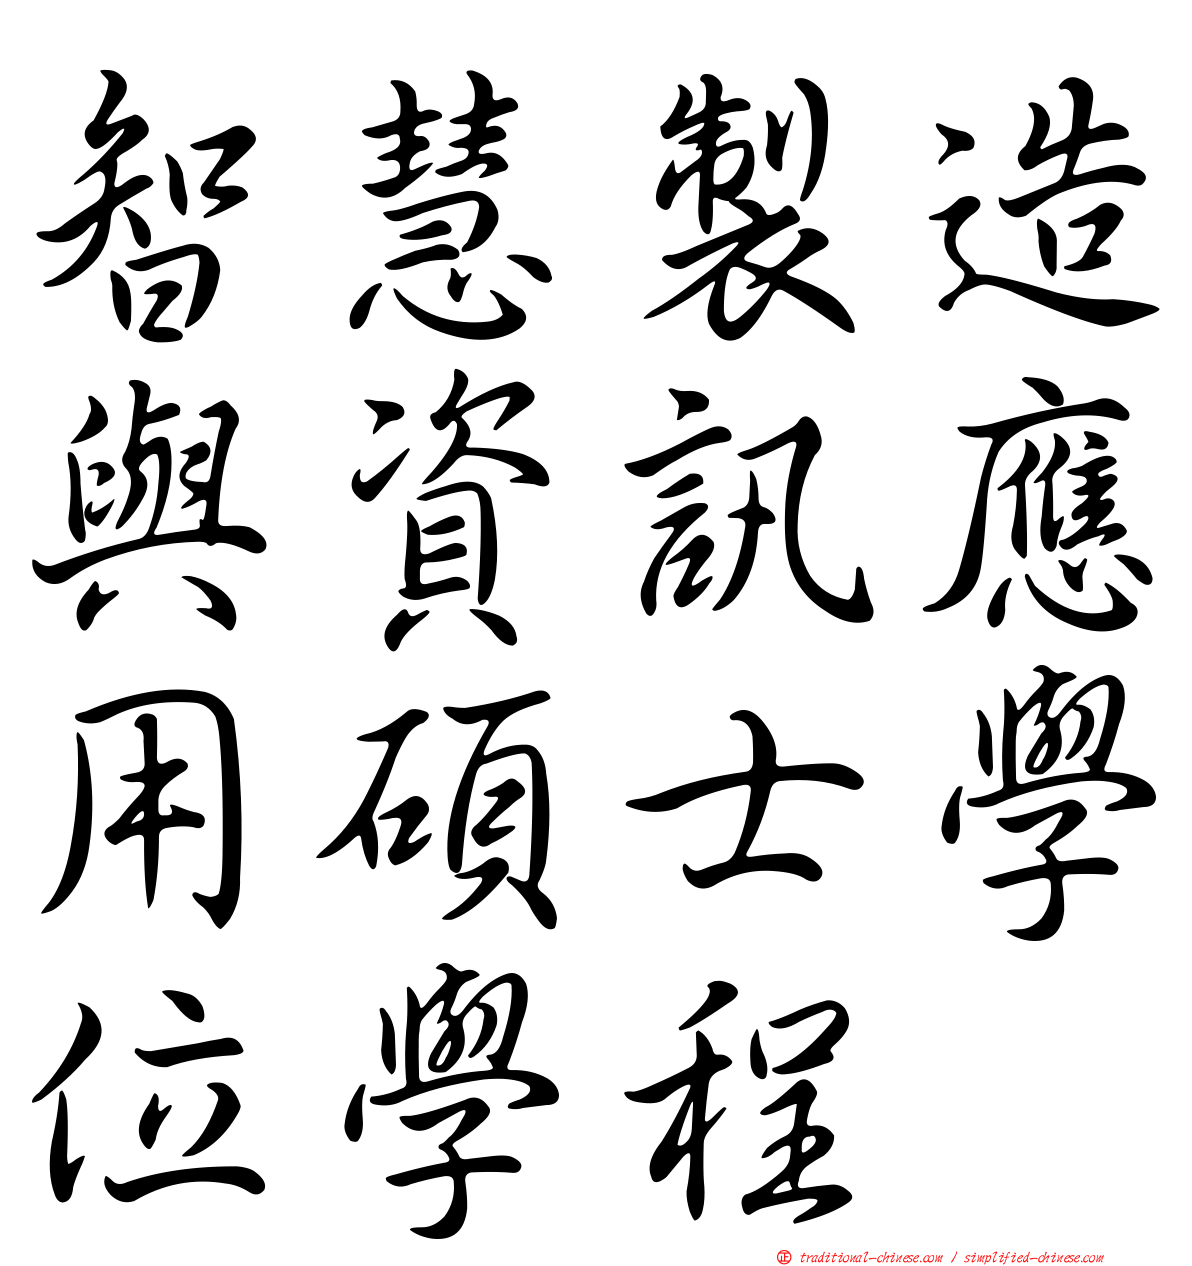 智慧製造
與資訊應
用碩士學
位學程
正 traditional-chinese.com / simplified-chinese.com